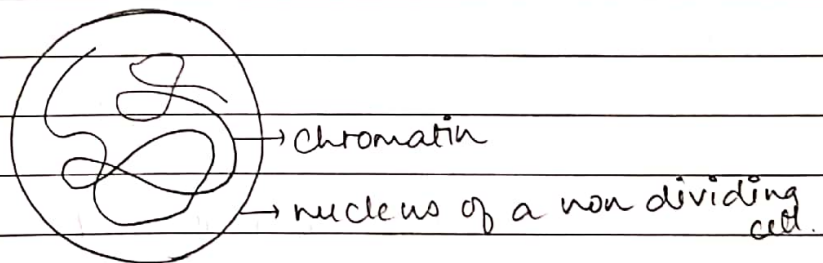 chromatin
nucleus of a non dividing
cell.